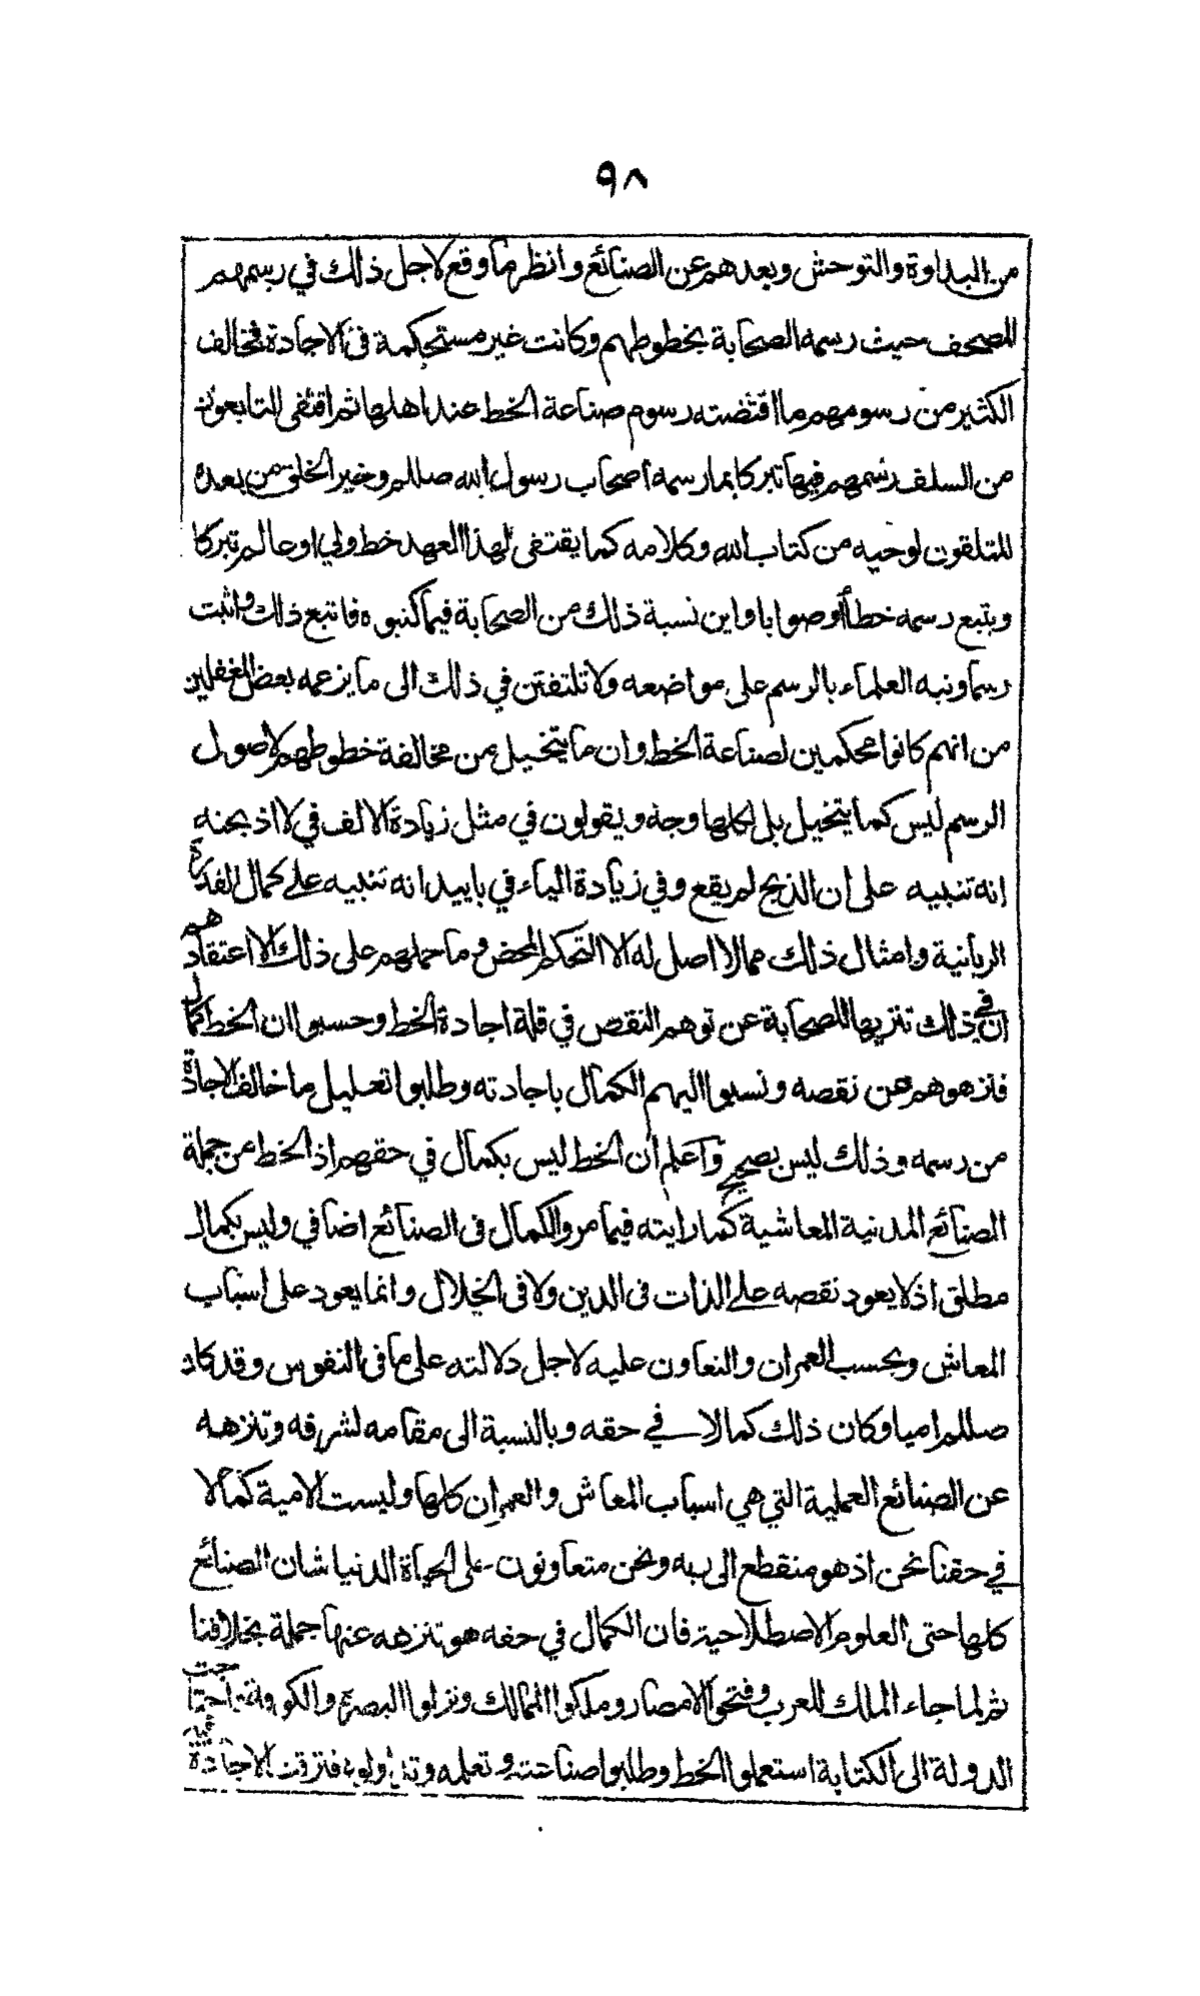 ٩٨
من البداوة والتوحش وبعدهم عن الصنائع وانظر ما وقع لاجل ذلك في رسمهم
المصحف حيث رسمه الصحابة بخطوطهم وكانت غير مستحكمة في الاجادة فخالف
الكثير من رسومهم ما اقتضته رسوم صناعة الخط عند اهلها ثم اقتفى التابعون
من السلف رسمهم فيها تبركا بما رسمه اصحاب رسول الله صللم وخير الخلق من بعده
المتلقون لوحيه من كتاب الله وكلامه كما يقتفى لهذا العهد خط ولي او عالم تبركا
ويتبع رسمه خطأ أو صوابا واين نسبة ذلك من الصحابة فيما كتبوه فاتبع ذلك واثبت
رسما ونبه العلماء بالرسم على مواضعه ولا تلتفتن في ذلك الى ما يزعمه بعض المغفلين
من انهم كانوا محكمين لصناعة الخط وان ما يتخيل من مخالفة خطوطهم لاصول
الرسم ليس كما يتخيل بل لكلها وجه ويقولون في مثل زيادة الالف في لا اذبحنه
انه تنبيه على ان الذبح لم يقع وفي زيادة الياء في باييد انه تنبيه على كمال القدرة
الربانية وامثال ذلك مما لا اصل له الا التحكم المحض وما حملهم على ذلك الا اعتقادهم
ان في ذلك تنزيها للصحابة عن توهم النقص في قلة اجادة الخط وحسبوا ان الخط كمال
فنزهوهم عن نقصه ونسبوا اليهم الكمال باجادته وطلبوا تعليل ما خالف الاجادة
من رسمه وذلك ليس بصحيح وآعلم ان الخط ليس بكمال في حقهم اذ الخط من جملة
الصنائع المدنية المعاشية كما رايته فيما مر والكمال في الصنائع اضافي وليس بكمال
مطلق اذ لا يعود نقصه على الذات في الدين ولا في الخلال وانما يعود على اسباب
المعاش وبحسب العمران والتعاون عليه لاجل دلالته على ما في النفوس وقد كان
صللم اميا وكان ذلك كمالا في حقه وبالنسبة الى مقامه لشرفه وتنزهه
عن الصنائع العملية التي هي اسباب المعاش والعمران كلها وليست الامية كمالا
في حقنا نحن اذ هو منقطع الى ربه ونحن متعاونون على الحياة الدنيا شان الصنائع
كلها حتى العلوم الاصطلاحية فان الكمال في حقه هو تنزهه عنها جملة بخلافنا
ثم لما جاء الملك للعرب وفتحوا الامصار وملكوا الممالك ونزلوا البصرة والكوفة واحتاجت
الدولة الى الكتابة استعملوا الخط وطلبوا صناعته وتعلمه وتداولوه فترقت الاجادة فيه